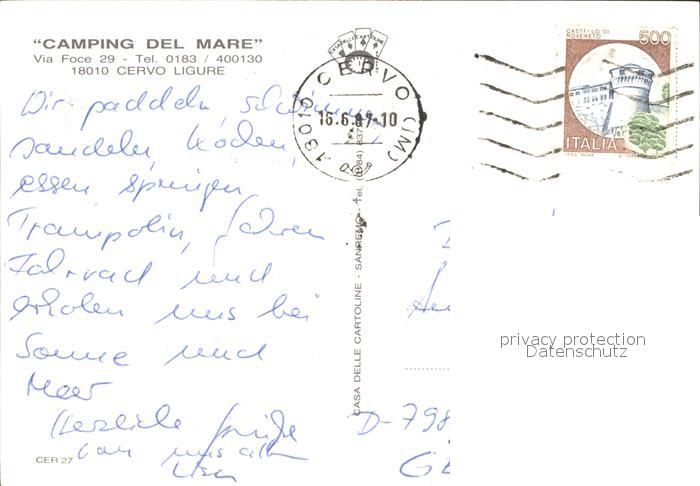 "CAMPING DEL MARE"
Via Foce 29 - Tel. 0183 / 400130
18010 CERVO LIGURE
Wir paddeln, schwimmen,
sandeln,
essen, springen
Trampolin, fahren
Fahrrad und
erholen uns bei
Sonne und
Meer
Herzliche Grüße
von uns allen
CER 27
18010 CERVO (IM)
16.6.97-10
CASA DELLE CARTOLINE - SANREMO - Tel. (0184)
CASTELLO DI
ROVERETO
500
ITALIA
D-798
privacy protection
Datenschutz